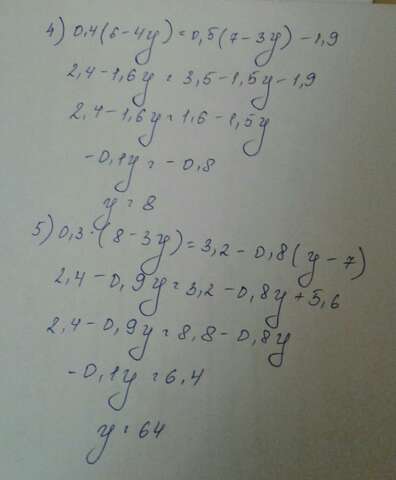 4) 0,4(6-4y)=0,5(7-3y)-1,9
2,4-1,6y=3,5-1,5y-1,9
2,4-1,6y=1,6-1,5y
-0,1y=-0,8
y=8
5) 0,3·(8-3y)=3,2-0,8(y-7)
2,4-0,9y=3,2-0,8y+5,6
2,4-0,9y=8,8-0,8y
-0,1y=6,4
y=64